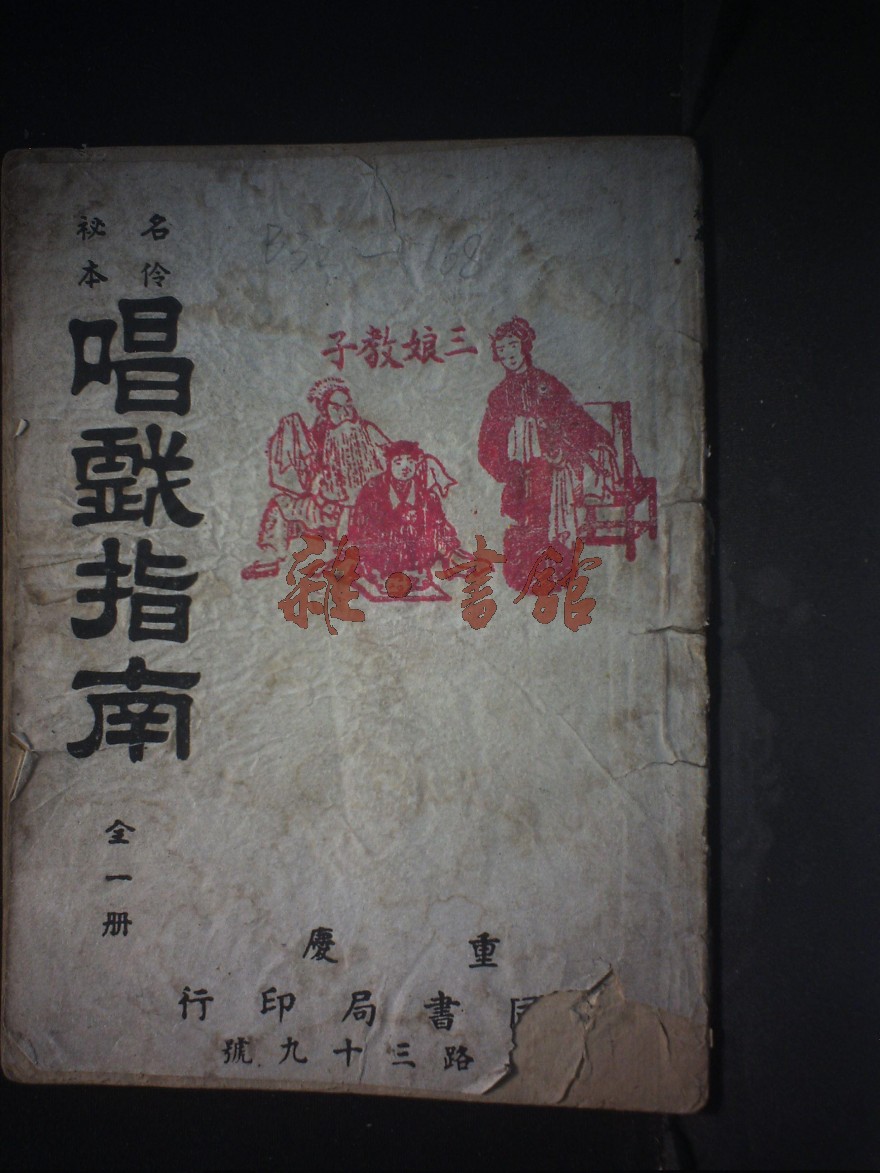 名伶
祕本
唱戲指南
全一册
三娘教子
重慶
書局印行
路三十九號
雜·書館